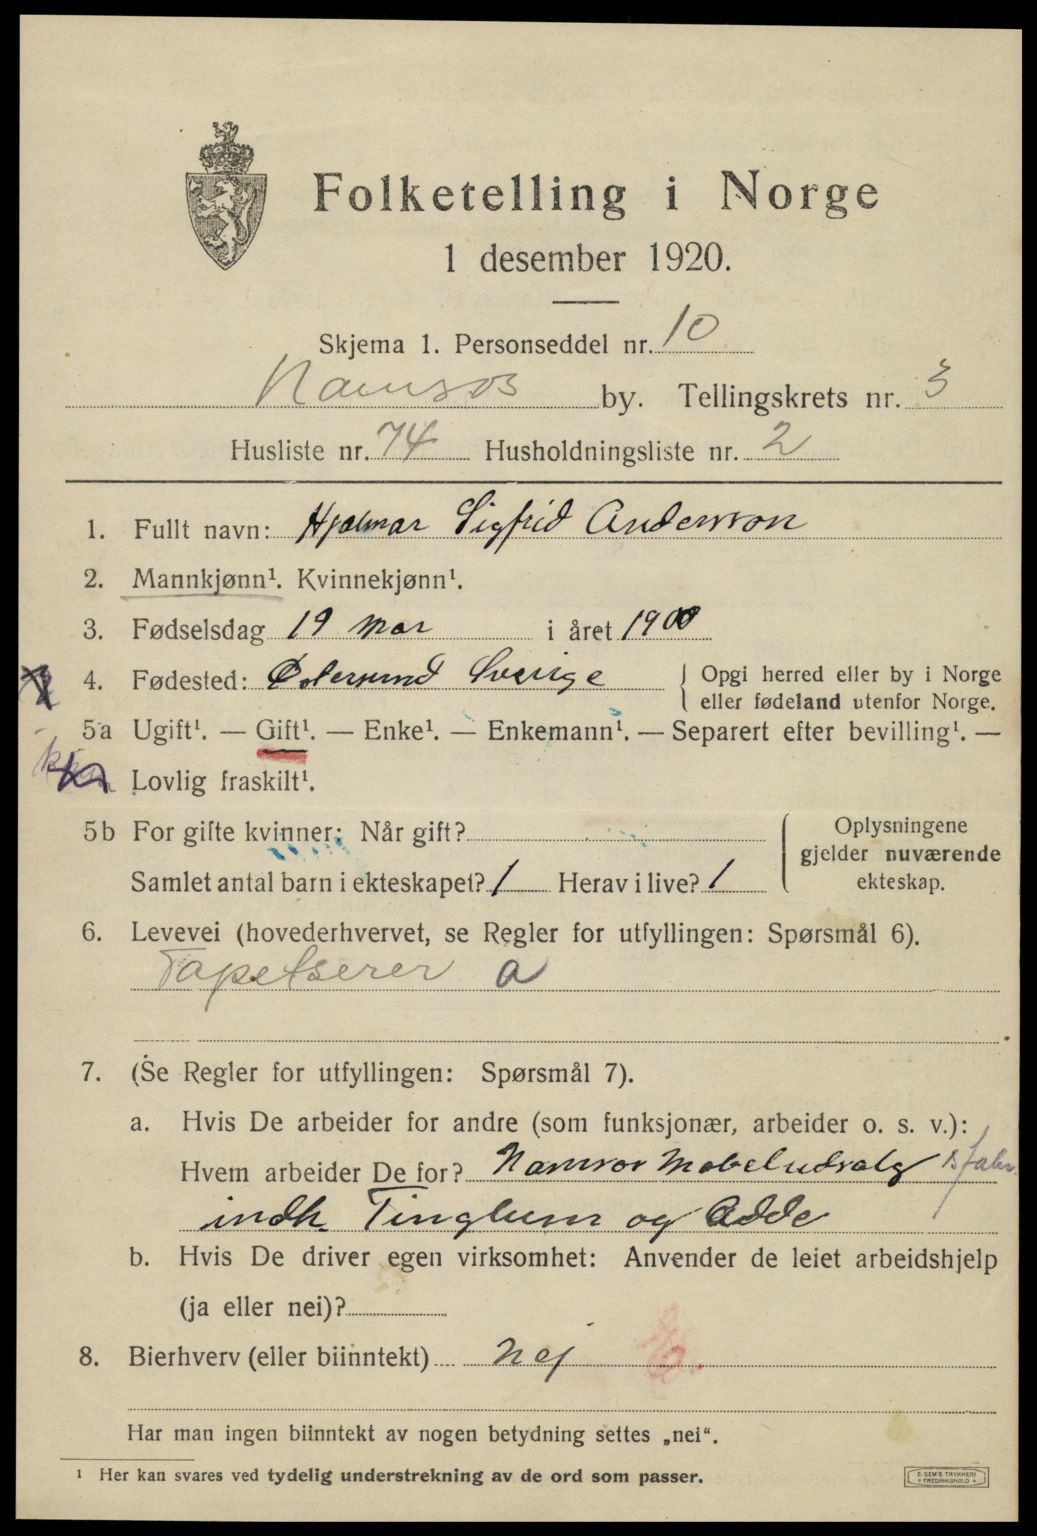 Folketelling i Norge
1 desember 1920.
Skjema 1. Personseddel nr. 10
Namsos by. Tellingskrets nr. 3
Husliste nr. 74 Husholdningsliste nr. 2
1. Fullt navn: Hjalmar Sigfrid Andersson
2. Mannkjønn¹. Kvinnekjønn¹.
3. Fødselsdag 19 Mar i året 1900
4. Fødested: Østersund Sverige
Opgi herred eller by i Norge
eller fødeland utenfor Norge.
5a Ugift¹. — Gift¹. — Enke¹. — Enkemann¹. — Separert efter bevilling¹. —
Lovlig fraskilt¹.
5b For gifte kvinner: Når gift?
Samlet antal barn i ekteskapet? 1 Herav i live? 1
Oplysningene
gjelder nuværende
ekteskap.
6. Levevei (hovederhvervet, se Regler for utfyllingen: Spørsmål 6).
Tapetserer a
7. (Se Regler for utfyllingen: Spørsmål 7).
a. Hvis De arbeider for andre (som funksjonær, arbeider o. s. v.):
Hvem arbeider De for? Namsos Møbeludsalg
indh Tinglum og Adde
b. Hvis De driver egen virksomhet: Anvender de leiet arbeidshjelp
(ja eller nei)?
8. Bierhverv (eller biinntekt) Nej E.
Har man ingen biinntekt av nogen betydning settes „nei“.
¹ Her kan svares ved tydelig understrekning av de ord som passer.
E. SEM'S TRYKKERI
FREDRIKSHALD